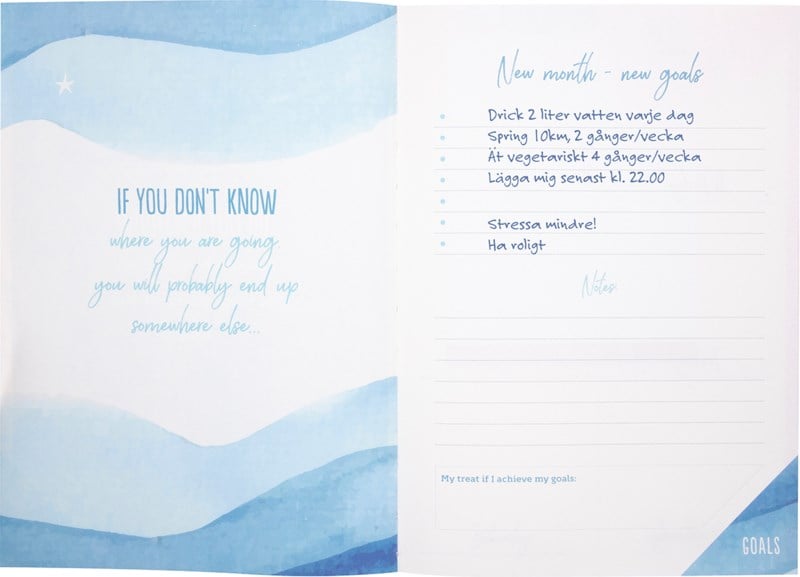 IF YOU DON'T KNOW
where you are going,
you will probably end up
somewhere else...
New month - new goals
Drick 2 liter vatten varje dag
Spring 10km, 2 gånger/vecka
Ät vegetariskt 4 gånger/vecka
Lägga mig senast kl. 22.00
Stressa mindre!
Ha roligt
Notes:
My treat if I achieve my goals:
GOALS